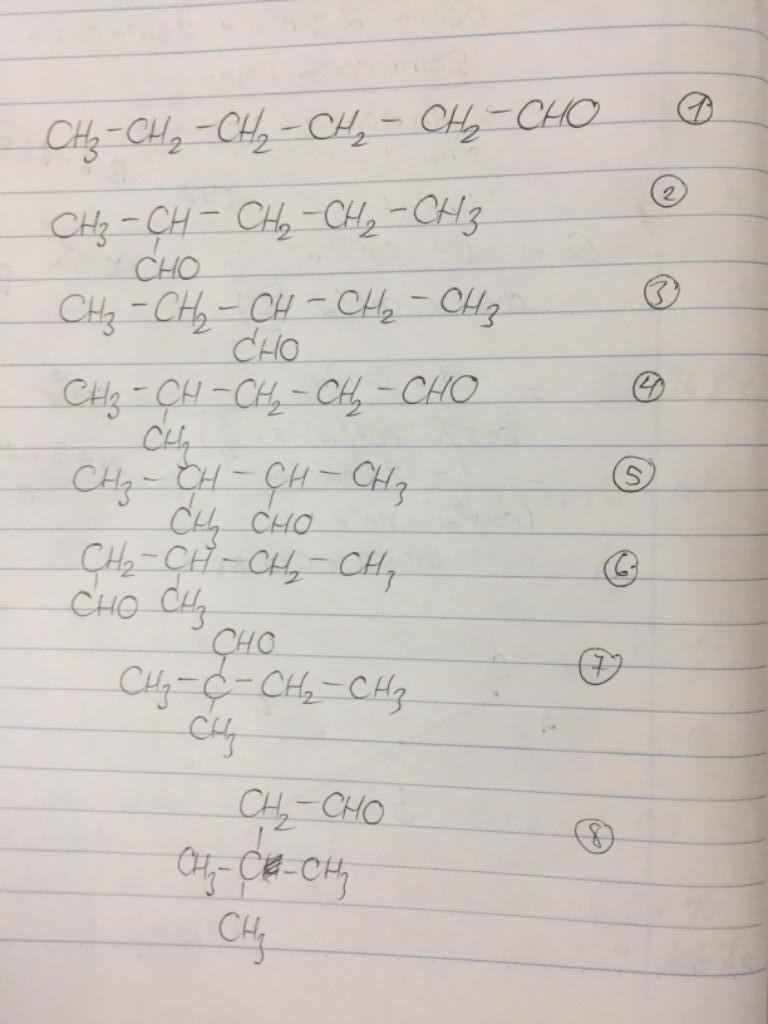 CH₃-CH₂-CH₂-CH₂-CH₂-CHO ①
②
CH₃-CH-CH₂-CH₂-CH₃
CHO
CH₃-CH₂-CH-CH₂-CH₃ ③
CHO
CH₃-CH-CH₂-CH₂-CHO ④
CH₃
CH₃-CH-CH-CH₃ ⑤
CH₃ CHO
CH₂-CH-CH₂-CH₃ ⑥
CHO CH₃
CHO
CH₃-C-CH₂-CH₃ ⑦
CH₃
CH₂-CHO
⑧
CH₃-C-CH₃
CH₃